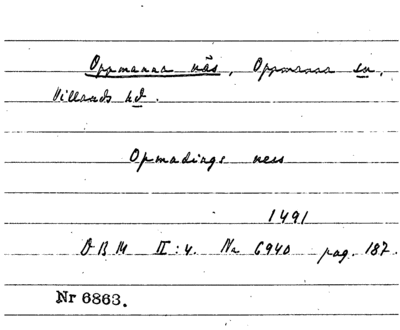 Oppmanna näs, Oppmanna sn,
Villands hd.
Opmadings ness
1491
ÆBM II:4. No 6940 pag. 187.
Nr 6863.